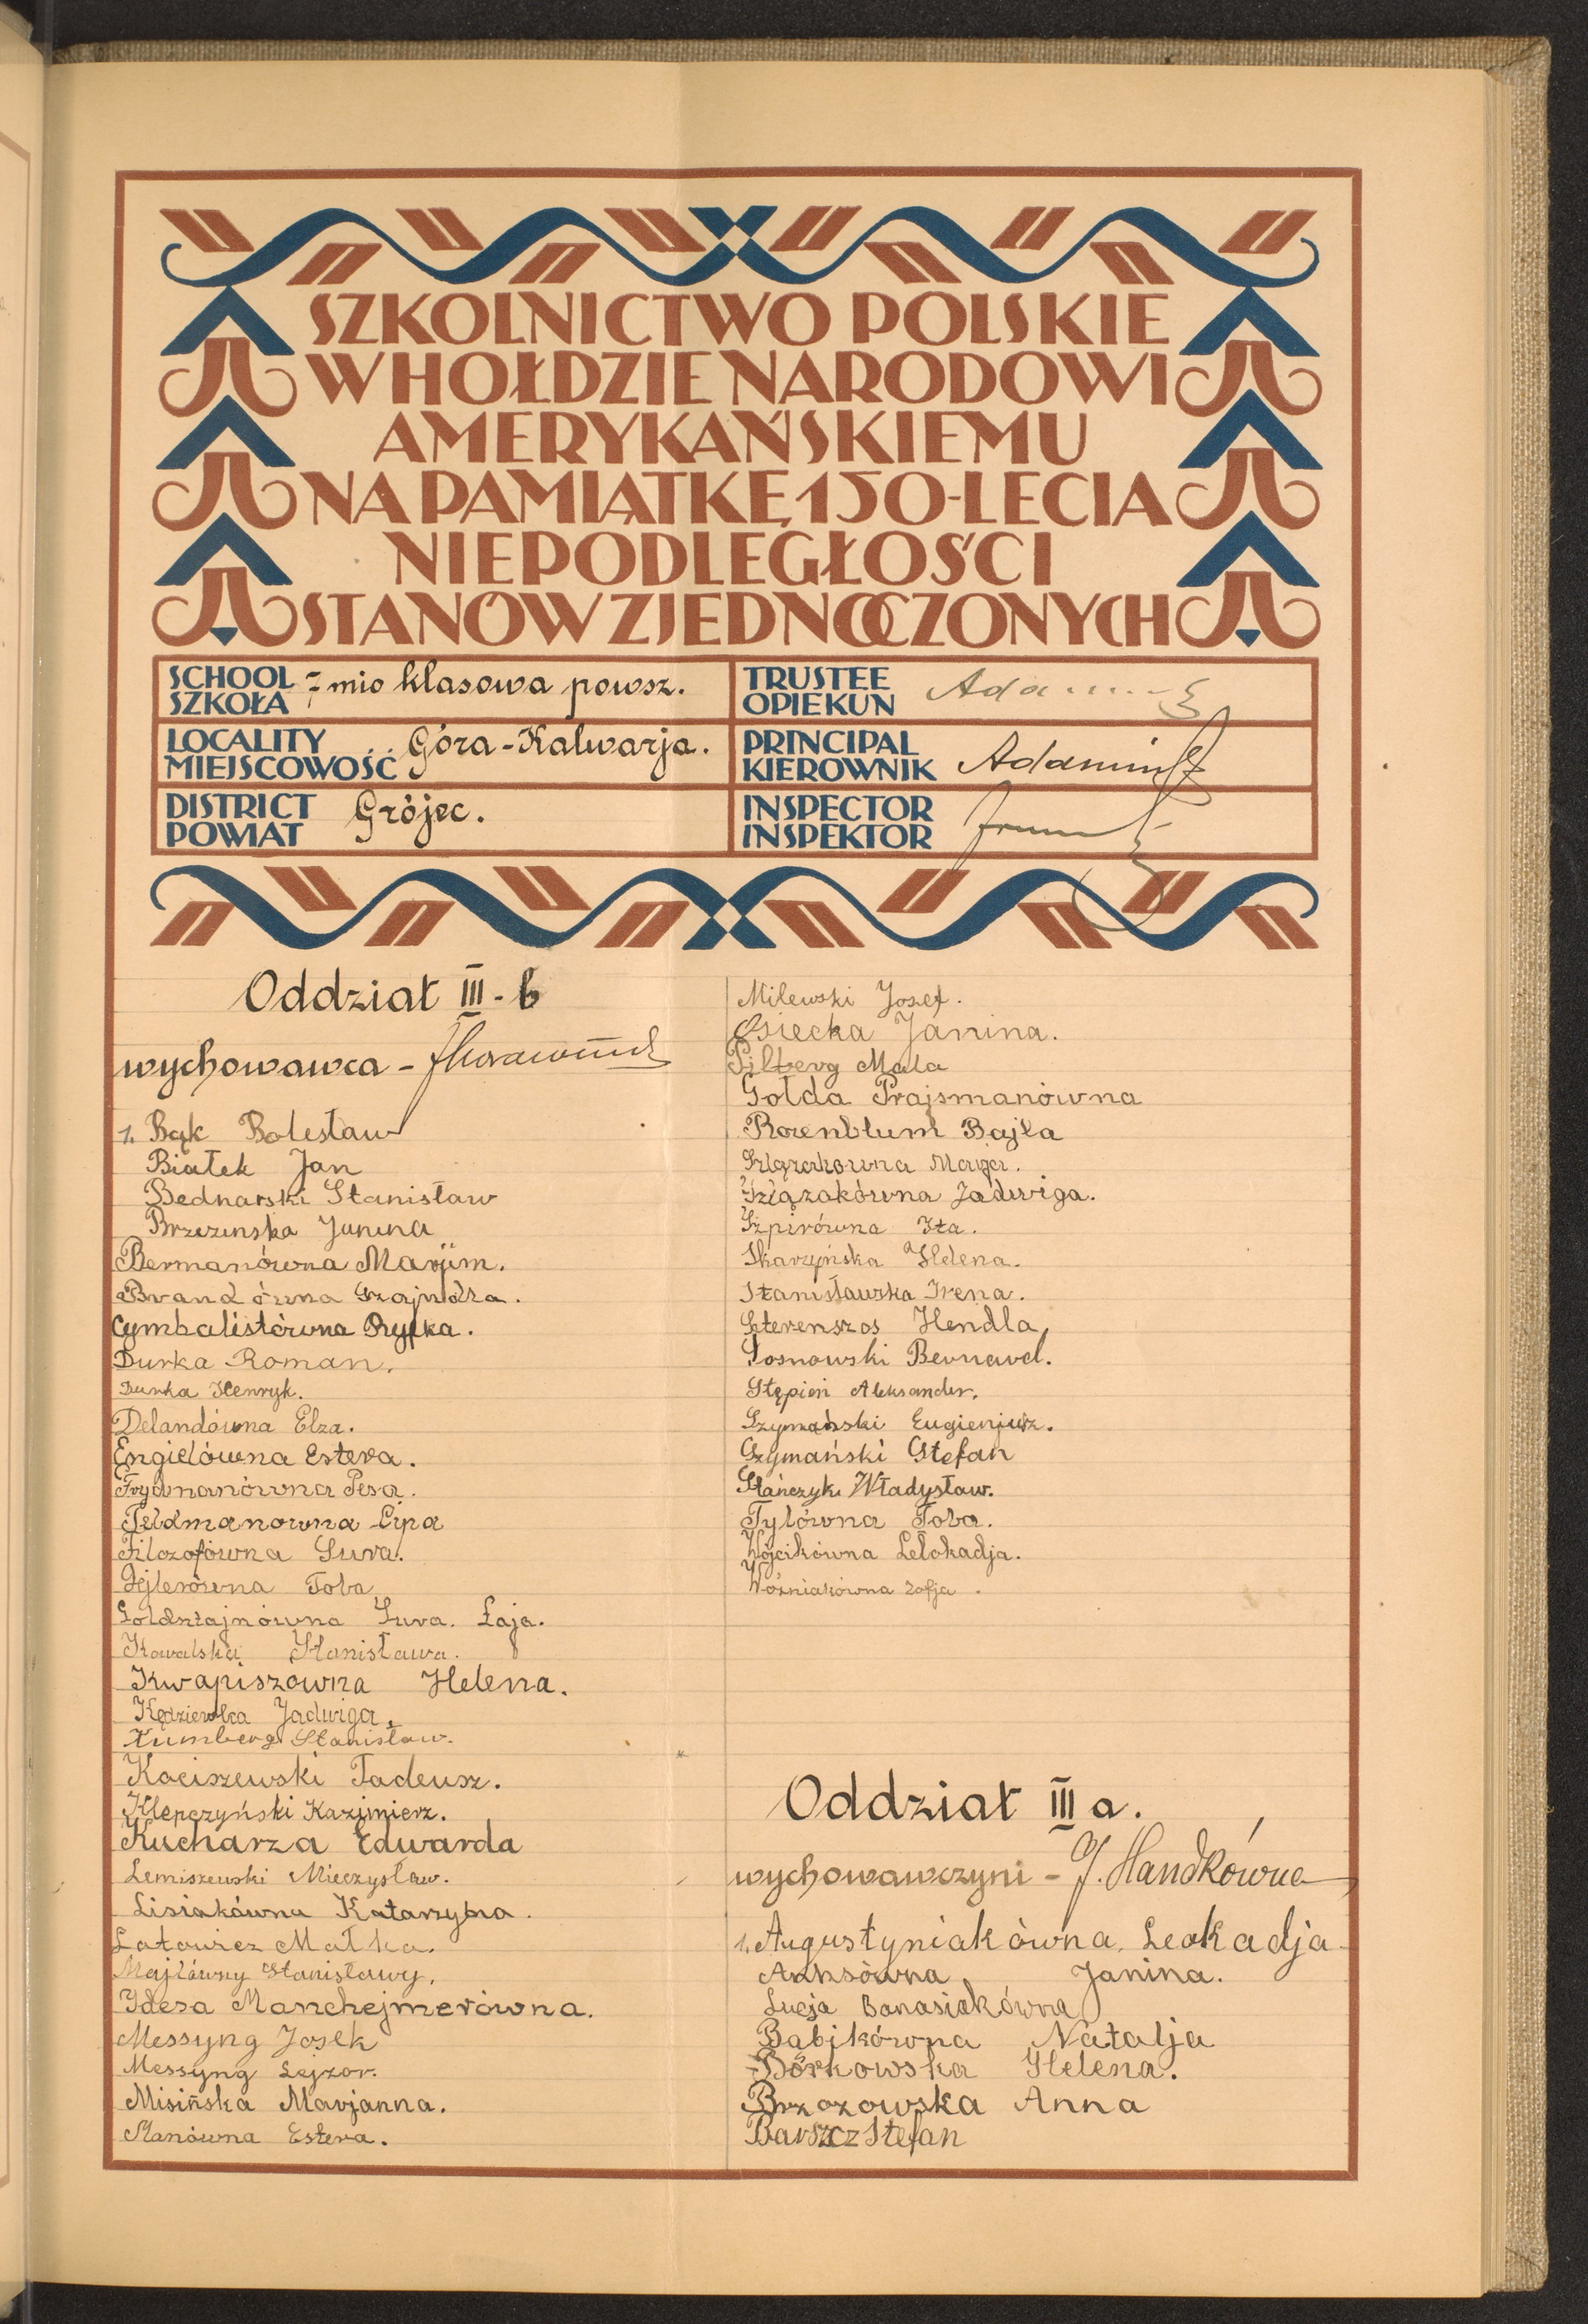 SZKOLNICTWO POLSKIE
W HOŁDZIE NARODOWI
AMERYKAŃSKIEMU
NA PAMIĄTKĘ 150-LECIA
NIEPODLEGŁOŚCI
STANÓW ZJEDNOCZONYCH
SCHOOL
SZKOŁA
7 mio klasowa powsz.
TRUSTEE
OPIEKUN
LOCALITY
MIEJSCOWOŚĆ
Góra-Kalwarja.
PRINCIPAL
KIEROWNIK
DISTRICT
POWIAT
Grójec.
INSPECTOR
INSPEKTOR
Oddział III-b
wychowawca -
1. Bąk Bolesław
Białek Jan
Bednarski Stanisław
Brzezinska Janina
Bermanówna Marjim.
Brandówna Szajndla.
Cymbalistówna Ryfka.
Durka Roman.
Durka Henryk.
Delandówna Elza.
Engielówna Estera.
Frydmanówna Pesa.
Feldmanowna Cipa
Filozofówna Sura.
Gejlerówna Toba
Goldsztajnówna Sura. Łaja.
Kowalska Stanisława.
Kwapiszówna Helena.
Kędzierska Jadwiga.
Kumberg Stanisław.
Kociszewski Tadeusz.
Klepczyński Kazimierz.
Kucharza Edwarda
Lemiszewski Mieczysław.
Lisiakówna Katarzyna.
Latowicz Małka.
Majłówny Stanisławy.
Idesa Manchejmerówna.
Messyng Josek
Messyng Lejzor.
Misińska Marjanna.
Manówna Estera.
Milewski Josef.
Osiecka Janina.
Pilberg Mala
Gołda Prajsmanówna
Rozenblum Bajla
Szlązakowna Marja.
Szlązakówna Jadwiga.
Szpirówna Ita.
Skarzyńska Helena.
Stanisławska Irena.
Szterenszos Hendla,
Sosnowski Bernard.
Stępień Aleksander.
Szymański Eugienjusz.
Szymański Stefan
Stańczyk Władysław.
Tylówna Toba.
Wójcikówna Lełokadja.
Woźniakówna Zofja.
Oddział III a.
wychowawczyni - J. Handkówna
1. Augustyniakówna, Leokadja
Anksówna, Janina.
Lucja Banasiakówna
Bąbikówna Natalja
Bórkowska Helena.
Brzozowska Anna
Barszcz Stefan